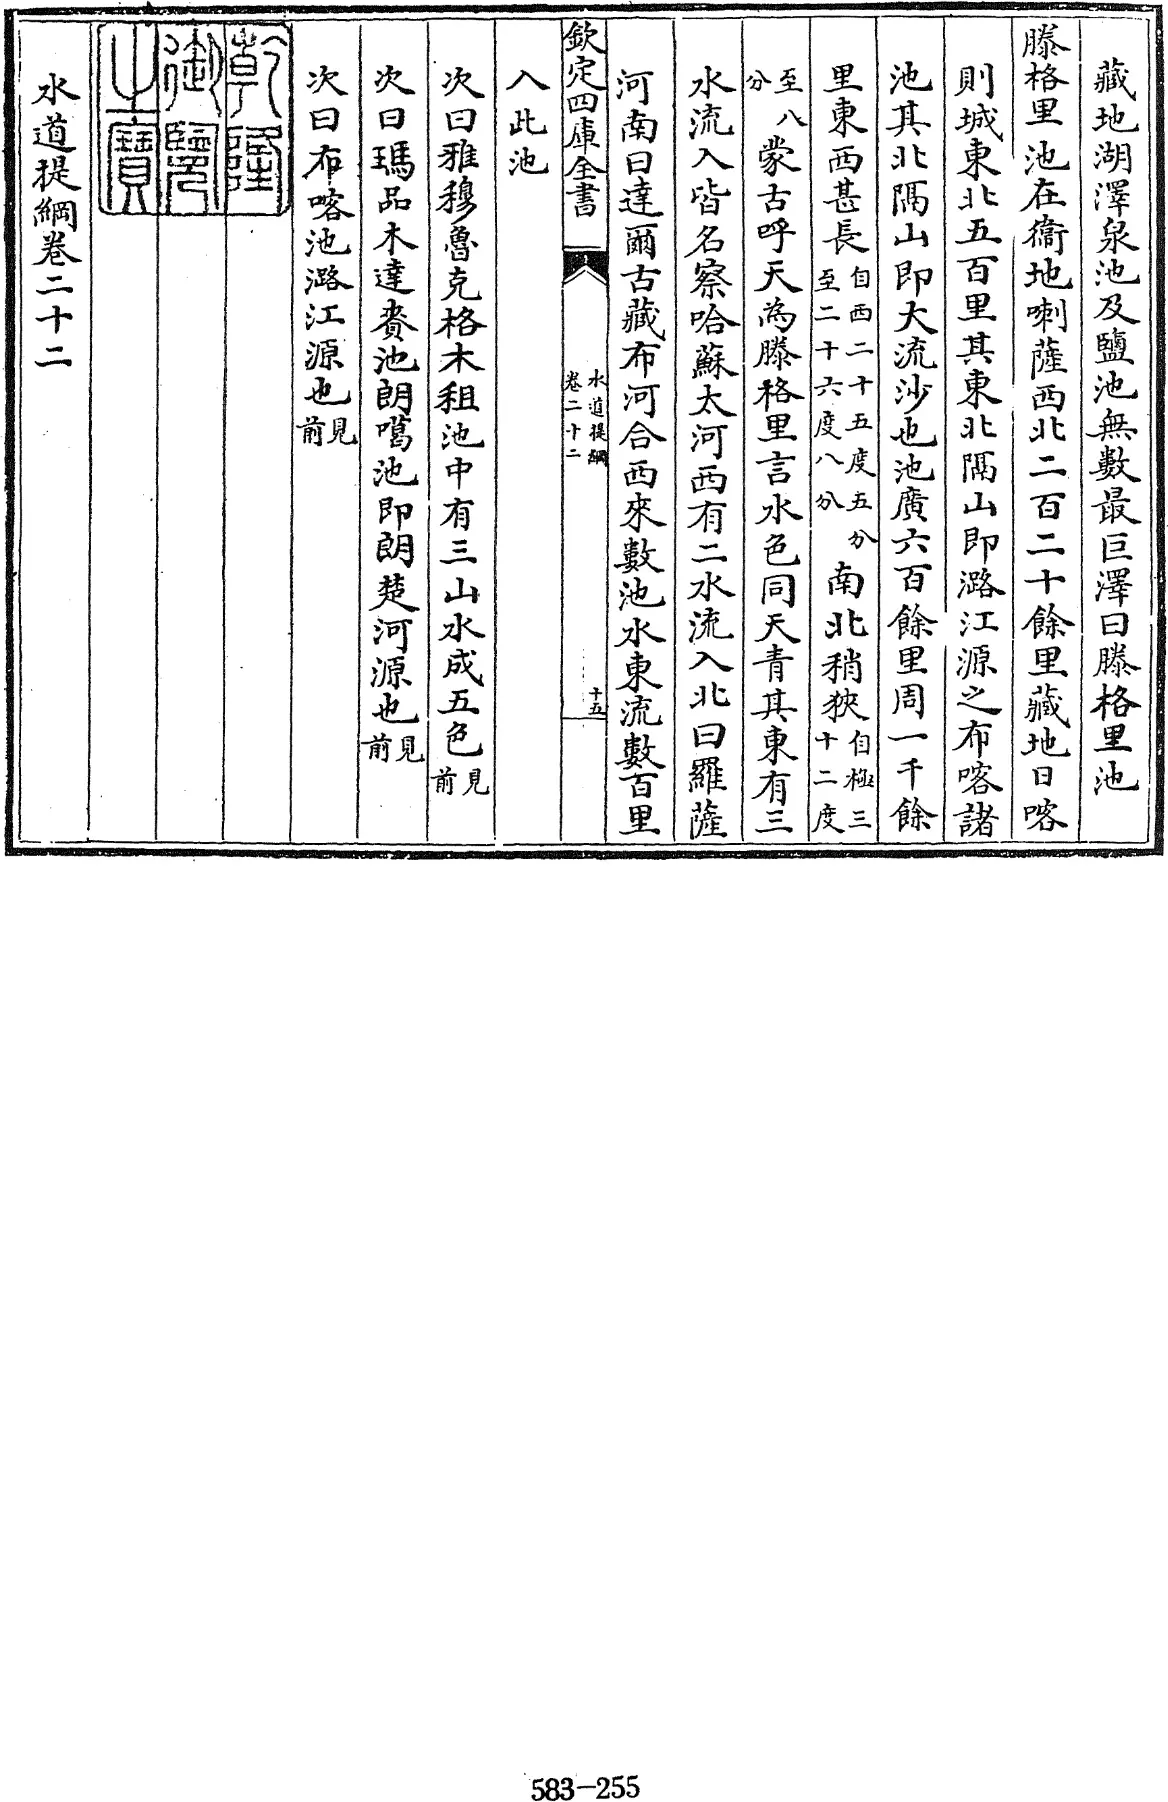 藏地湖澤泉池及鹽池無數最巨澤曰滕格里池
滕格里池在衞地喇薩西北二百二十餘里藏地日喀
則城東北五百里其東北隔山即潞江源之布喀諸
池其北隔山即大流沙也池廣六百餘里周一千餘
里東西甚長自西二十五度五分至二十六度八分南北稍狹自極三十二度
至八分蒙古呼天為滕格里言水色同天青其東有三
水流入皆名察哈蘇太河西有二水流入北曰羅薩
河南曰達爾古藏布河合西來數池水東流數百里
欽定四庫全書
水道提綱
卷二十二
十五
入此池
次曰雅穆魯克格木租池中有三山水成五色見前
次曰瑪品木達賚池朗噶池即朗楚河源也見前
次曰布喀池潞江源也見前
乾隆
御覽
之寶
水道提綱卷二十二
583-255